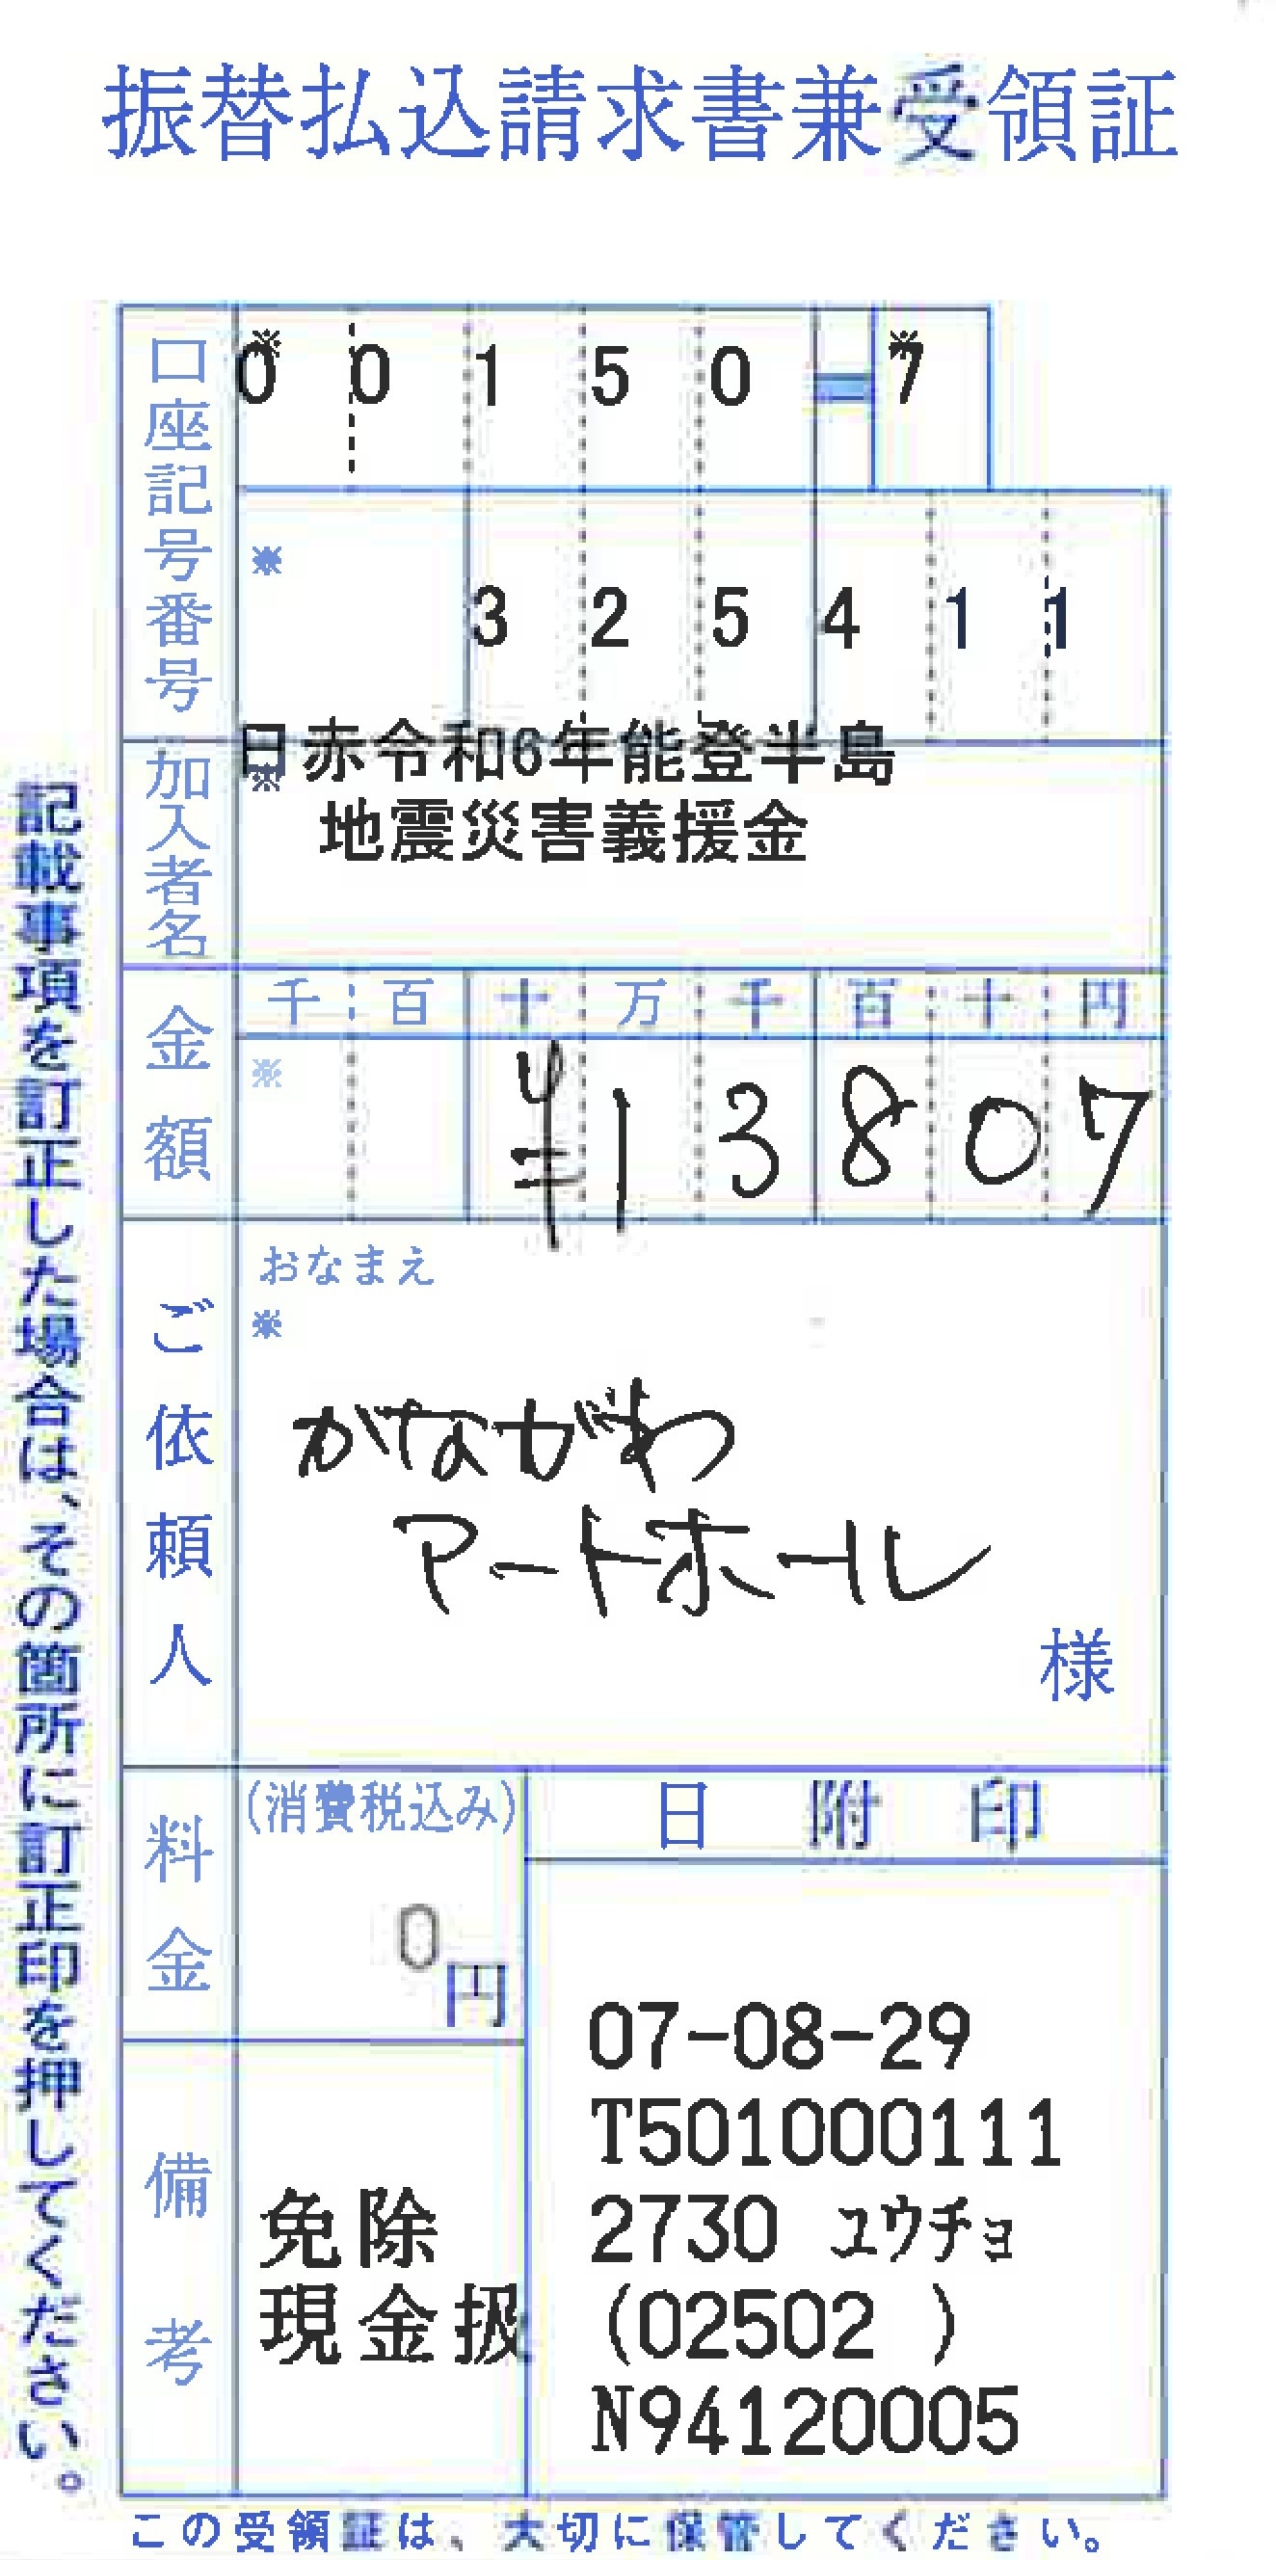 振替払込請求書兼受領証
口座記号番号
※
0 0 1 5 0 - 7
※
※
3 2 5 4 1 1
加入者名
※
日赤令和6年能登半島
地震災害義援金
金額
千 百 十 万 千 百 十 円
※
¥13807
ご依頼人
おなまえ
※
かながわ
アートホール
様
料金
(消費税込み)
0円
日附印
07-08-29
T501000111
2730 ユウチョ
(02502 )
N94120005
備考
免除
現金扱
記載事項を訂正した場合は、その箇所に訂正印を押してください。
この受領証は、大切に保管してください。